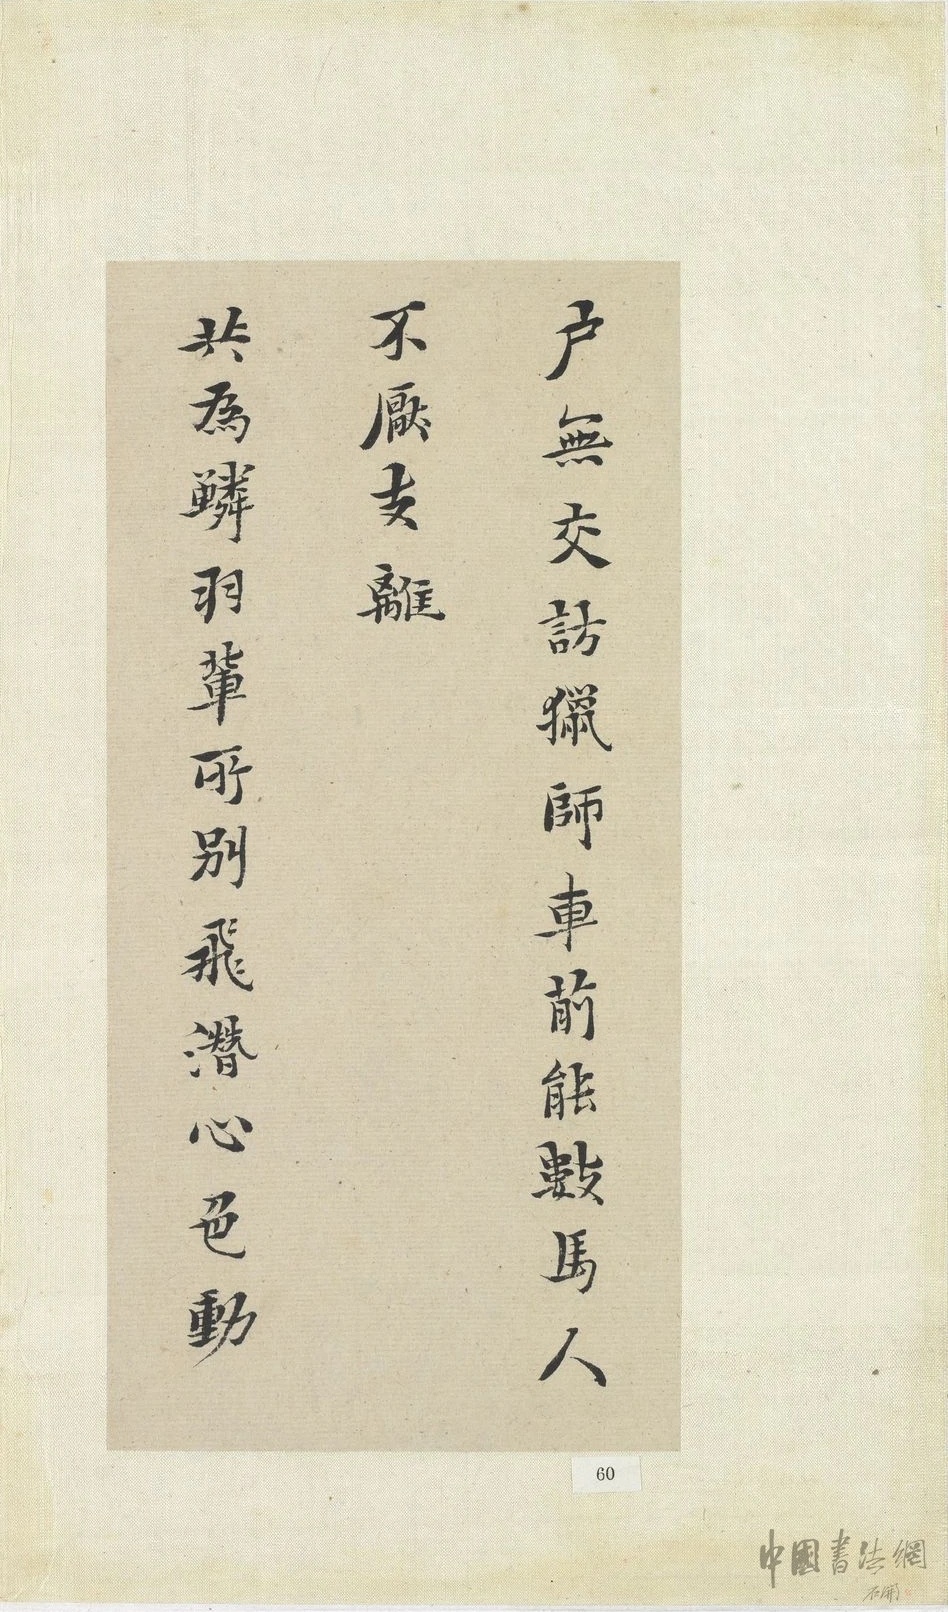 戶無交訪獵師車前能數馬人
不厭支離
共為鱗羽輩所別飛潛心色動
60
中國書法網
石開